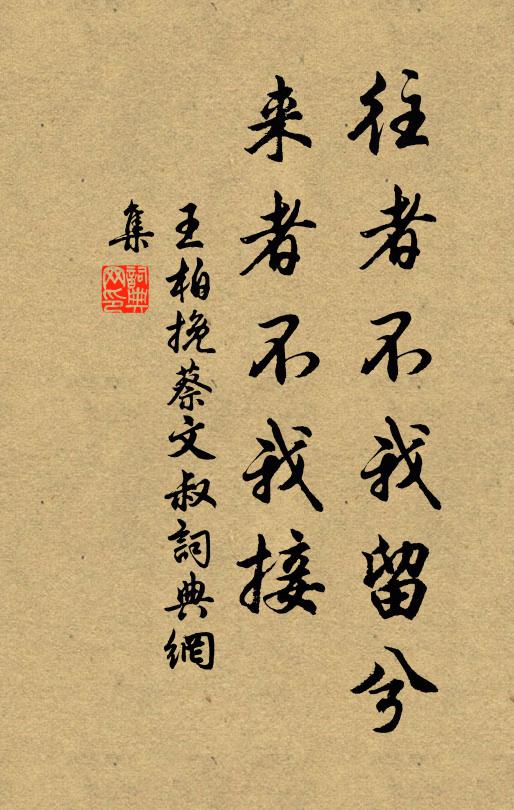 往者不我留兮
来者不我接
王柏挽蔡文叔詞典網
集
詞典
网印